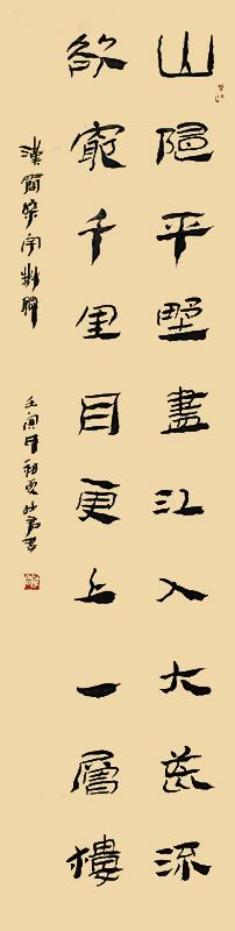 山隨平墅盡江入大荒流
欲窮千里目更上一層樓
漢簡集字對聯 壬寅年初夏